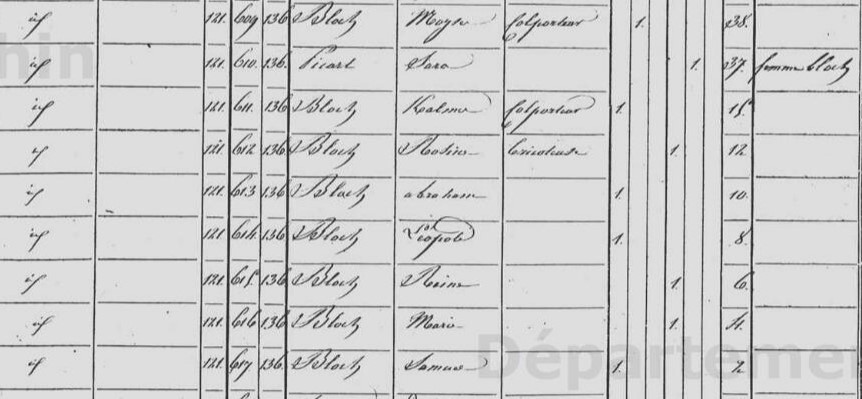 id 121. 609 136 Bloch Moyse Colporteur 1. 38.
id 121. 610. 136. Picart Sara 1. 37. femme Bloch
id 121. 611. 136 Bloch Kalme Colporteur 1. 15.
id 121. 612 136 Bloch Rosine tricoteuse 1. 12
id 121. 613 136 Bloch abraham 1. 10.
id 121. 614. 136 Bloch Léopold 1. 8.
id 121. 615. 136 Bloch Reine 1. 6.
id 121. 616 136 Bloch Marie 1. 4.
id 121. 617 136. Bloch Samuel 1. 2